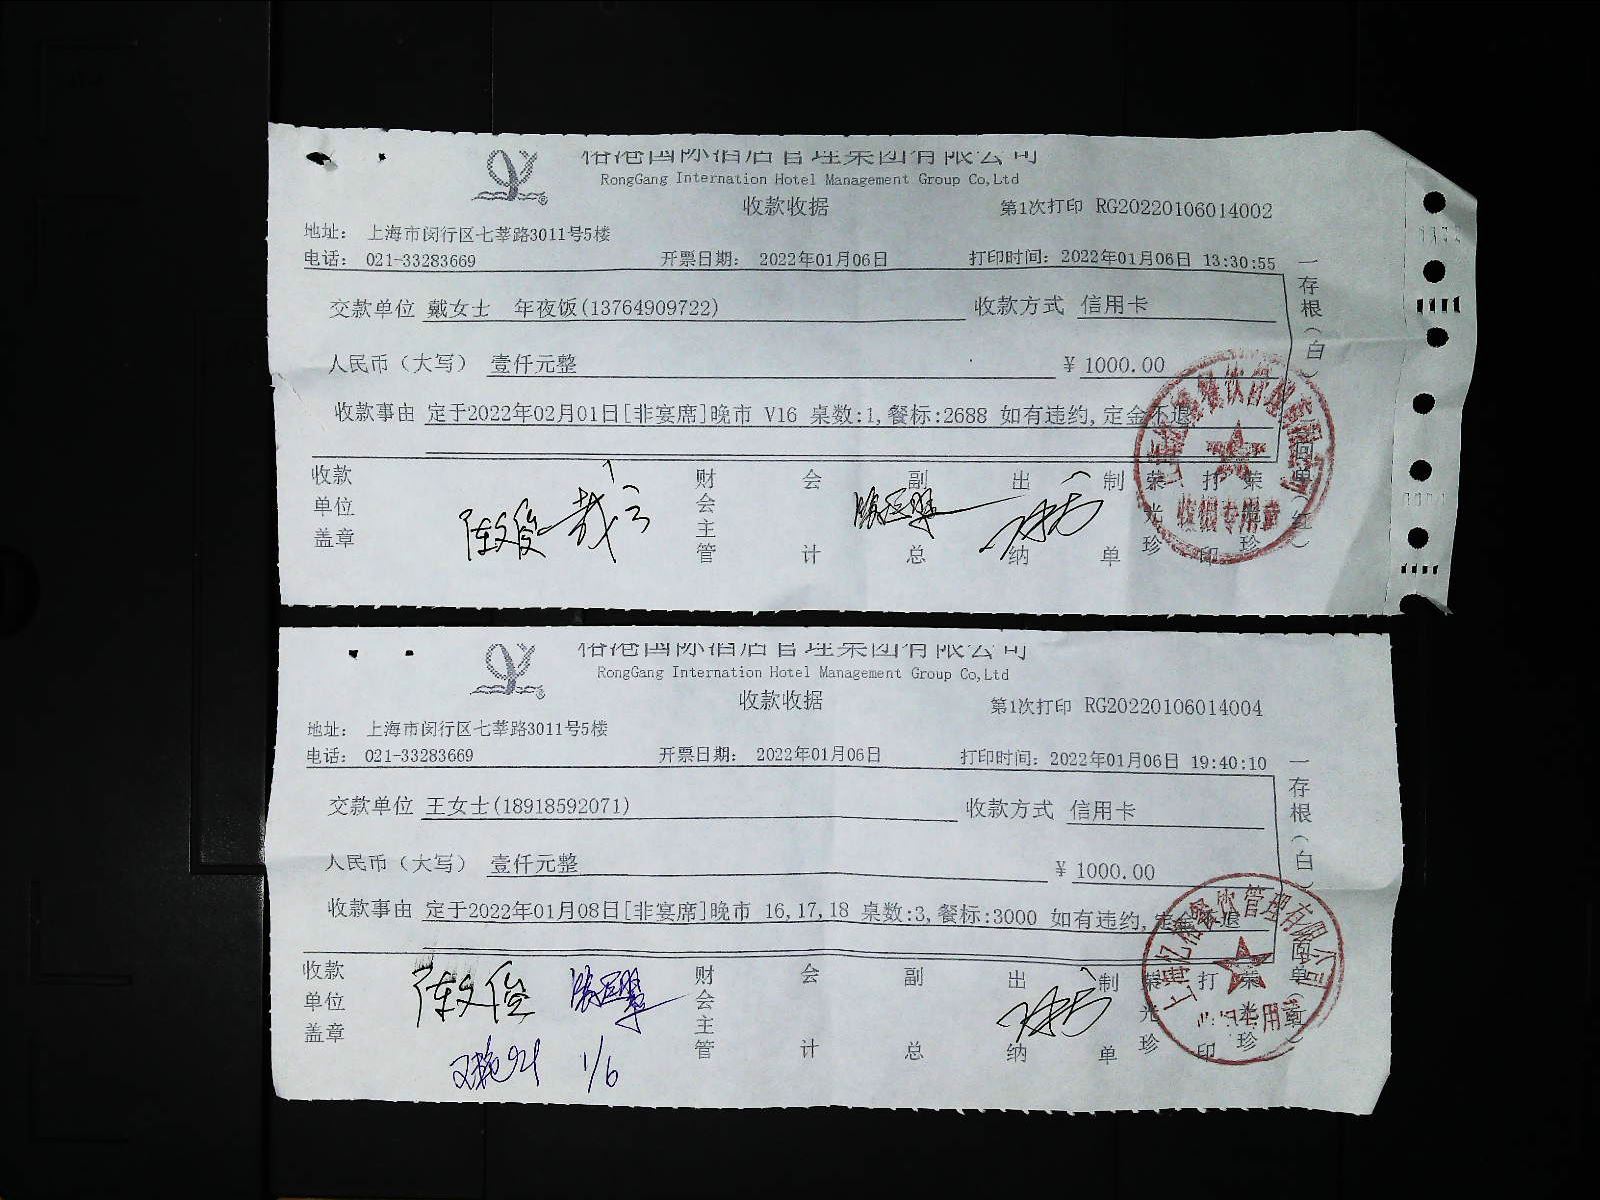 榕港国际酒店管理集团有限公司
RongGang Internation Hotel Management Group Co,Ltd
收款收据
第1次打印 RG20220106014002
地址： 上海市闵行区七莘路3011号5楼
电话： 021-33283669 开票日期： 2022年01月06日 打印时间： 2022年01月06日 13:30:55
交款单位 戴女士 年夜饭(13764909722) 收款方式 信用卡
人民币（大写） 壹仟元整 ¥ 1000.00
收款事由 定于2022年02月01日[非宴席]晚市 V16 桌数:1,餐标:2688 如有违约,定金不退
收款单位盖章 财会主管 会计 副总 出纳 制单 荣光珍 打印 荣光珍
陈文俊
一存根(白)
收银专用章
榕港国际酒店管理集团有限公司
RongGang Internation Hotel Management Group Co,Ltd
收款收据
第1次打印 RG20220106014004
地址： 上海市闵行区七莘路3011号5楼
电话： 021-33283669 开票日期： 2022年01月06日 打印时间： 2022年01月06日 19:40:10
交款单位 王女士(18918592071) 收款方式 信用卡
人民币（大写） 壹仟元整 ¥ 1000.00
收款事由 定于2022年01月08日[非宴席]晚市 16,17,18 桌数:3,餐标:3000 如有违约,定金不退
收款单位盖章 财会主管 会计 副总 出纳 制单 荣光珍 打印 荣光珍
陈文俊
1/6
一存根(白)